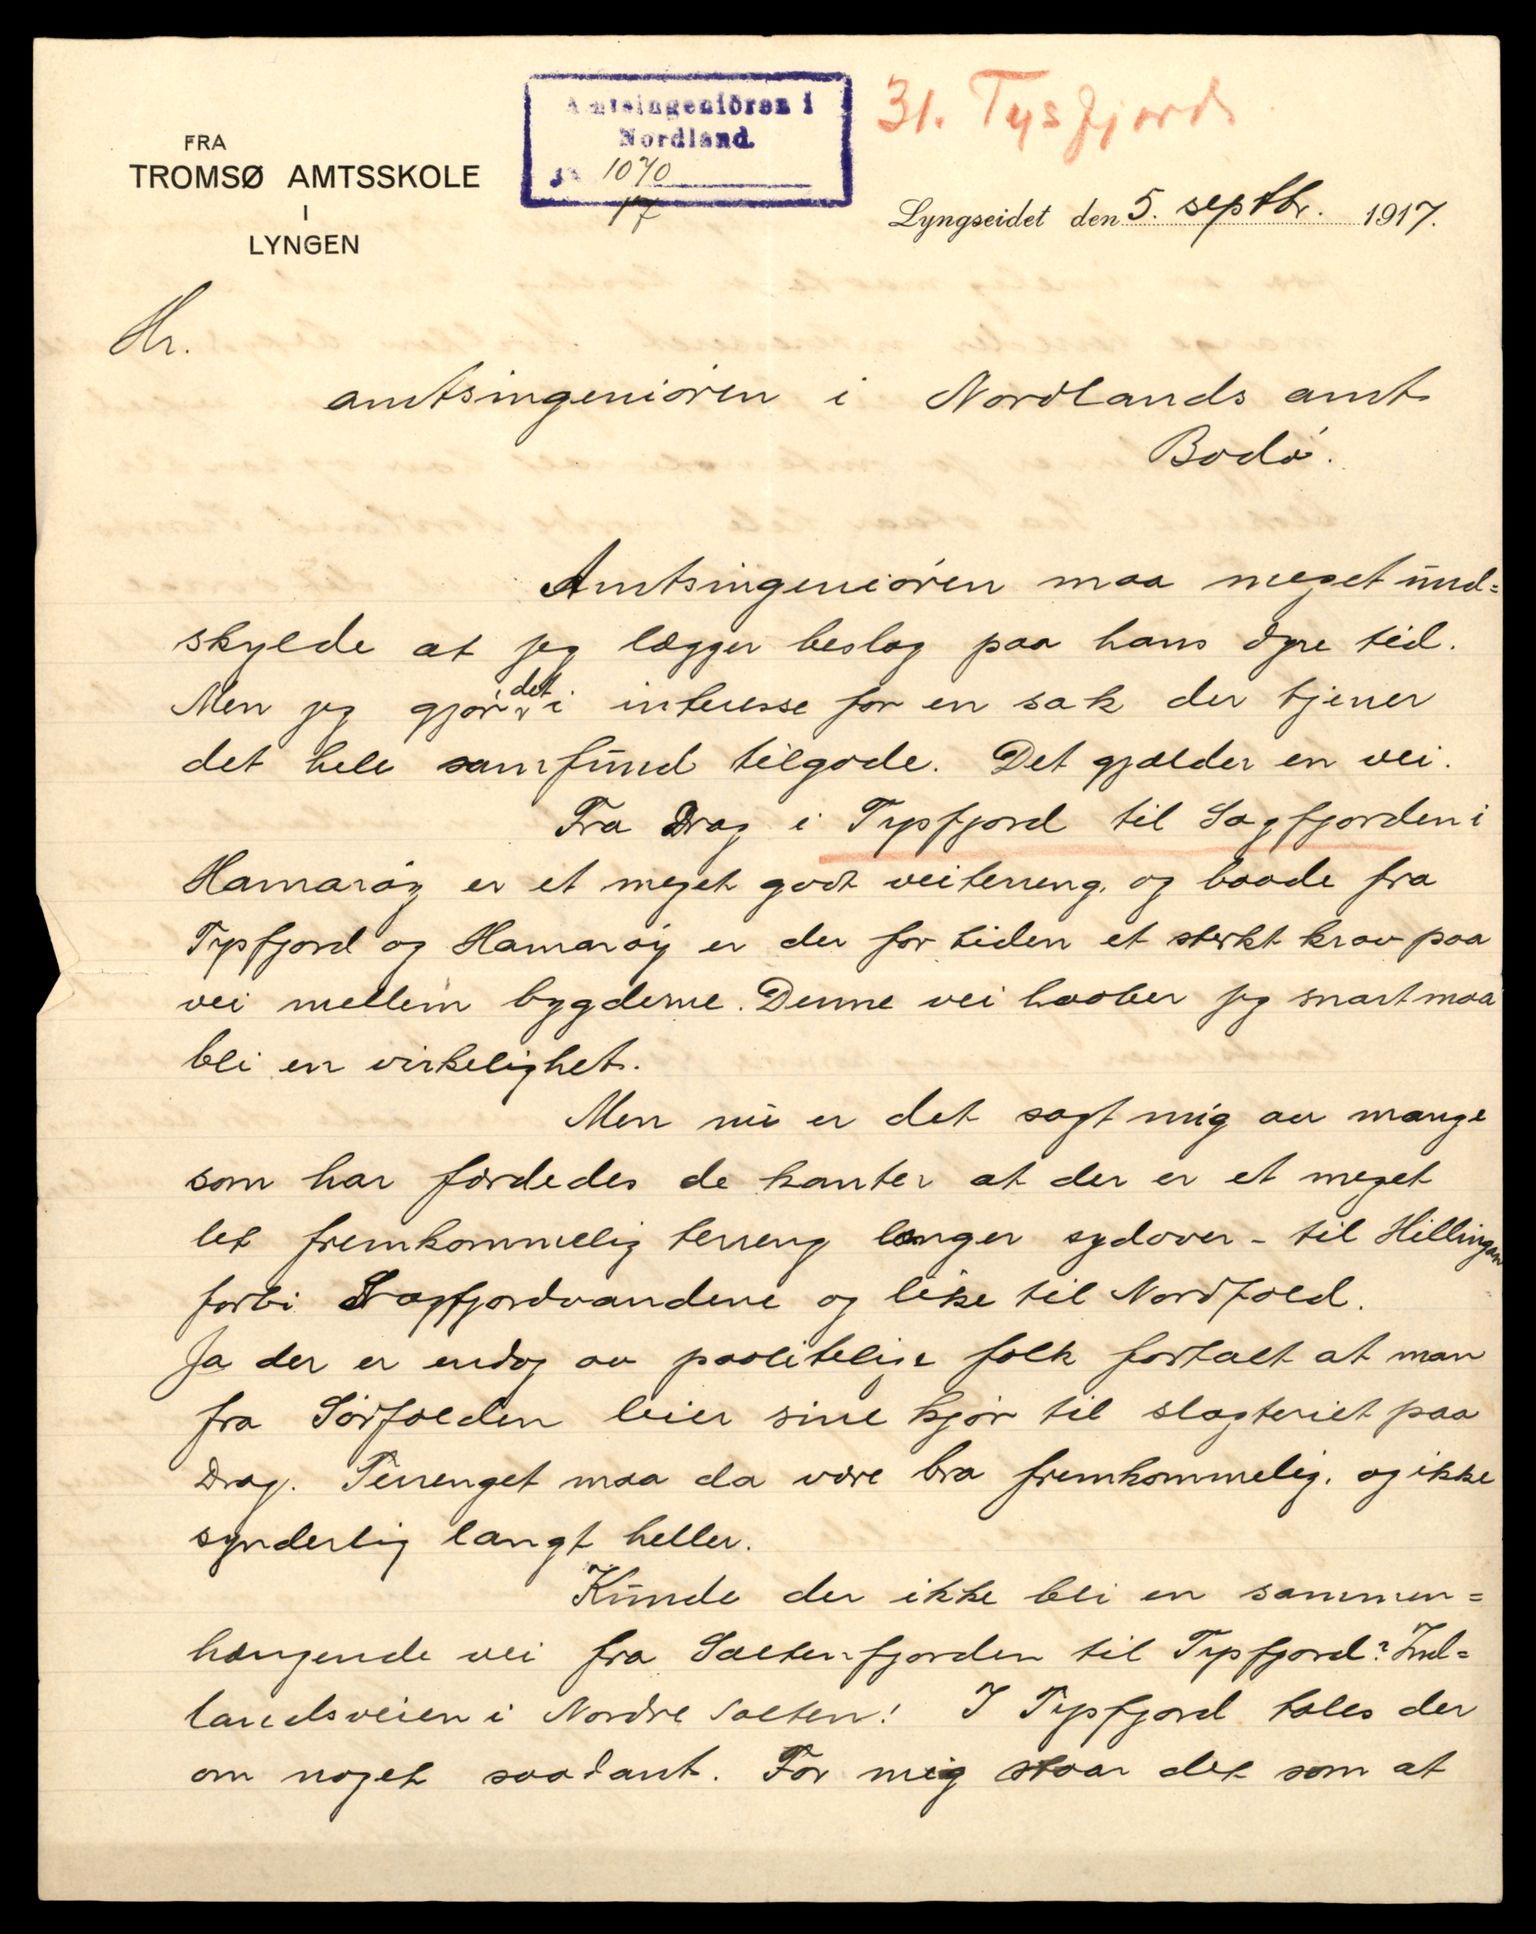 31. Tysfjord
Amtsingeniören i
Nordland.
JN 1070
17
FRA
TROMSØ AMTSSKOLE
I
LYNGEN
Lyngseidet den 5. septbr. 1917.
Hr.
amtsingeniören i Nordlands amt
Bodö.
Amtsingeniören maa meget und=
skylde at jeg lægger beslag paa hans dyre tid.
Men jeg gjör det i interesse for en sak der tjener
det hele samfund tilgode. Det gjælder en vei.
Fra Drag i Tysfjord til Sagfjorden i
Hamaröy er et meget godt veiterreng, og baade fra
Tysfjord og Hamaröy er der for tiden et sterkt krav paa
vei mellem bygderne. Denne vei haaber jeg snart maa
bli en virkelighet.
Men nu er det sagt mig av mange
som har færdedes de kanter at der er et meget
let fremkommelig terreng længer sydover - til Hellingen
forbi Sagfjordvandene og like til Nordfold.
Ja der er endog av paalitelige folk fortalt at man
fra Sörfolden leier sine kjör til slagteriet paa
Drag. Terrenget maa da være bra fremkommelig, og ikke
synderlig langt heller.
Kunde der ikke bli en sammen=
hængende vei fra Saltenfjorden til Tysfjord? Ind=
landsveien i Nordre Salten! I Tysfjord tales der
om noget saadant. For mig staar det som at